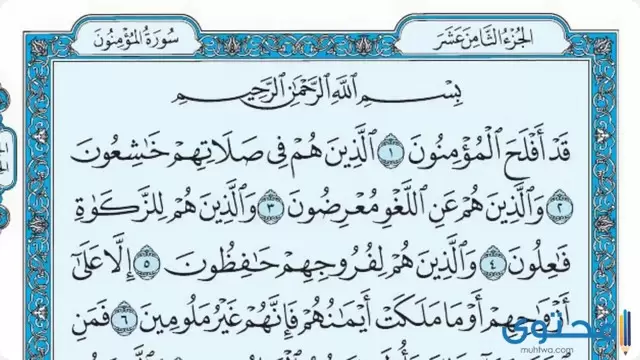 الجُزْءُ الثَّامِنَ عَشَرَ
سُورَةُ المُؤْمِنُونَ
بِسْمِ ٱللَّهِ ٱلرَّحْمَٰنِ ٱلرَّحِيمِ
قَدْ أَفْلَحَ ٱلْمُؤْمِنُونَ ١ ٱلَّذِينَ هُمْ فِى صَلَاتِهِمْ خَٰشِعُونَ
٢ وَٱلَّذِينَ هُمْ عَنِ ٱللَّغْوِ مُعْرِضُونَ ٣ وَٱلَّذِينَ هُمْ لِلزَّكَوٰةِ
فَٰعِلُونَ ٤ وَٱلَّذِينَ هُمْ لِفُرُوجِهِمْ حَٰفِظُونَ ٥ إِلَّا عَلَىٰٓ
أَزْوَٰجِهِمْ أَوْ مَا مَلَكَتْ أَيْمَٰنُهُمْ فَإِنَّهُمْ غَيْرُ مَلُومِينَ ٦ فَمَنِ
محتوى
muhtwa.com